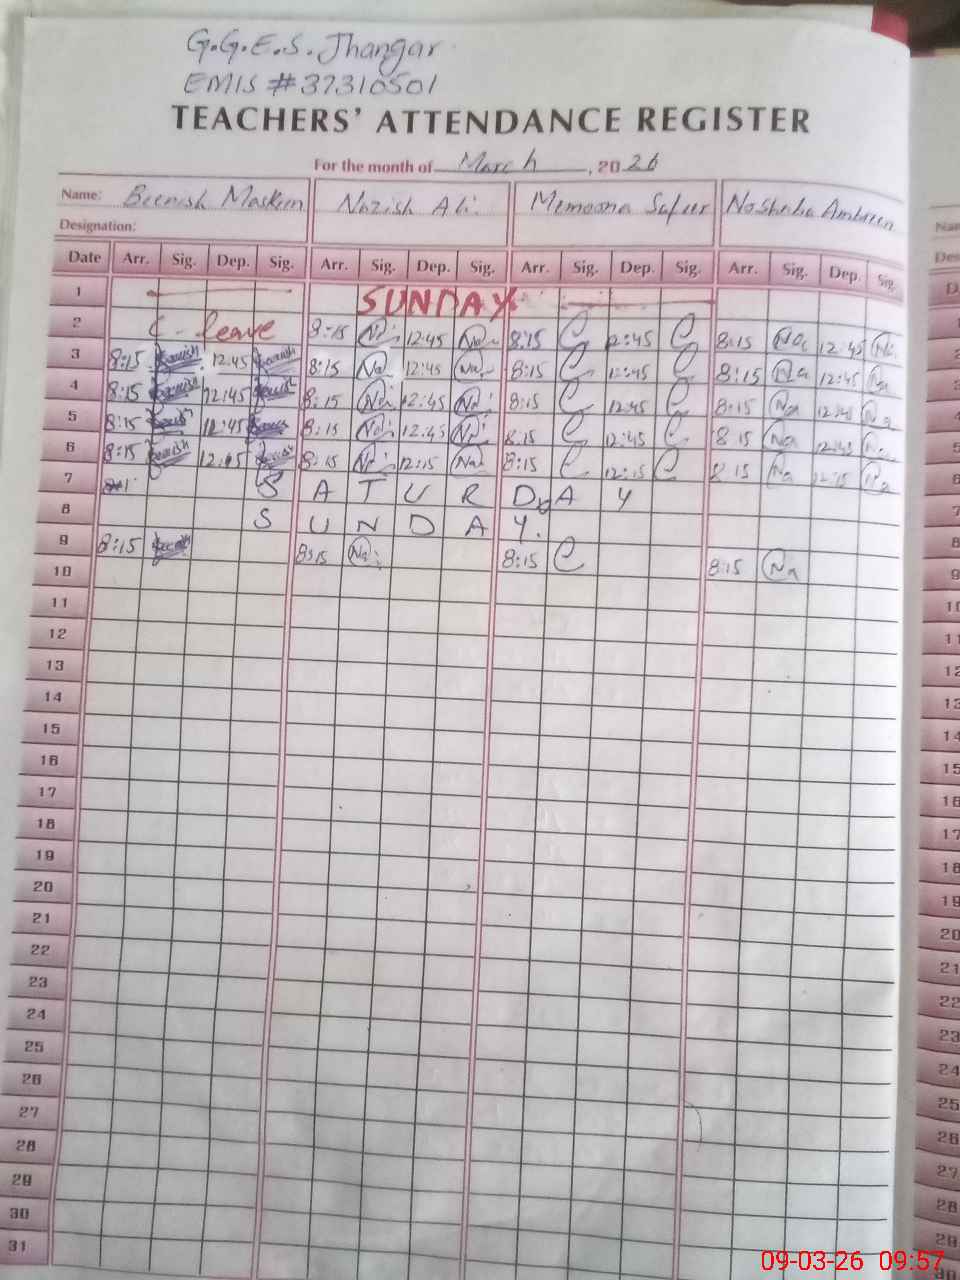 G.G.E.S. Jhangar
EMIS # 37310501
TEACHERS' ATTENDANCE REGISTER
For the month of March, 2026
Name: Beenish Maskeen Nazish Ali. Memoona Safeer Noshaba Ambreen
Designation:
Date Arr. Sig. Dep. Sig. Arr. Sig. Dep. Sig. Arr. Sig. Dep. Sig. Arr. Sig. Dep. Sig.
1 SUNDAY
2 C-leave 8:15 Na 12:45 Na 8:15 12:45 8:15 Na 12:45 Na
3 8:15 Beenish 12:45 Beenish 8:15 Na 12:45 Na 8:15 12:45 8:15 Na 12:45 Na
4 8:15 Beenish 12:45 Beenish 8:15 Na 12:45 Na 8:15 12:45 8:15 Na 12:45 Na
5 8:15 Beenish 12:45 Beenish 8:15 Na 12:45 Na 8:15 12:45 8:15 Na 12:45 Na
6 8:15 Beenish 12:15 Beenish 8:15 Na 12:15 Na 8:15 12:15 8:15 Na 12:15 Na
7 S A T U R D A Y
8 S U N D A Y.
9 8:15 Beenish 8:15 Na 8:15 8:15 Na
10
11
12
13
14
15
16
17
18
19
20
21
22
23
24
25
26
27
28
29
30
31
09-03-26 09:57